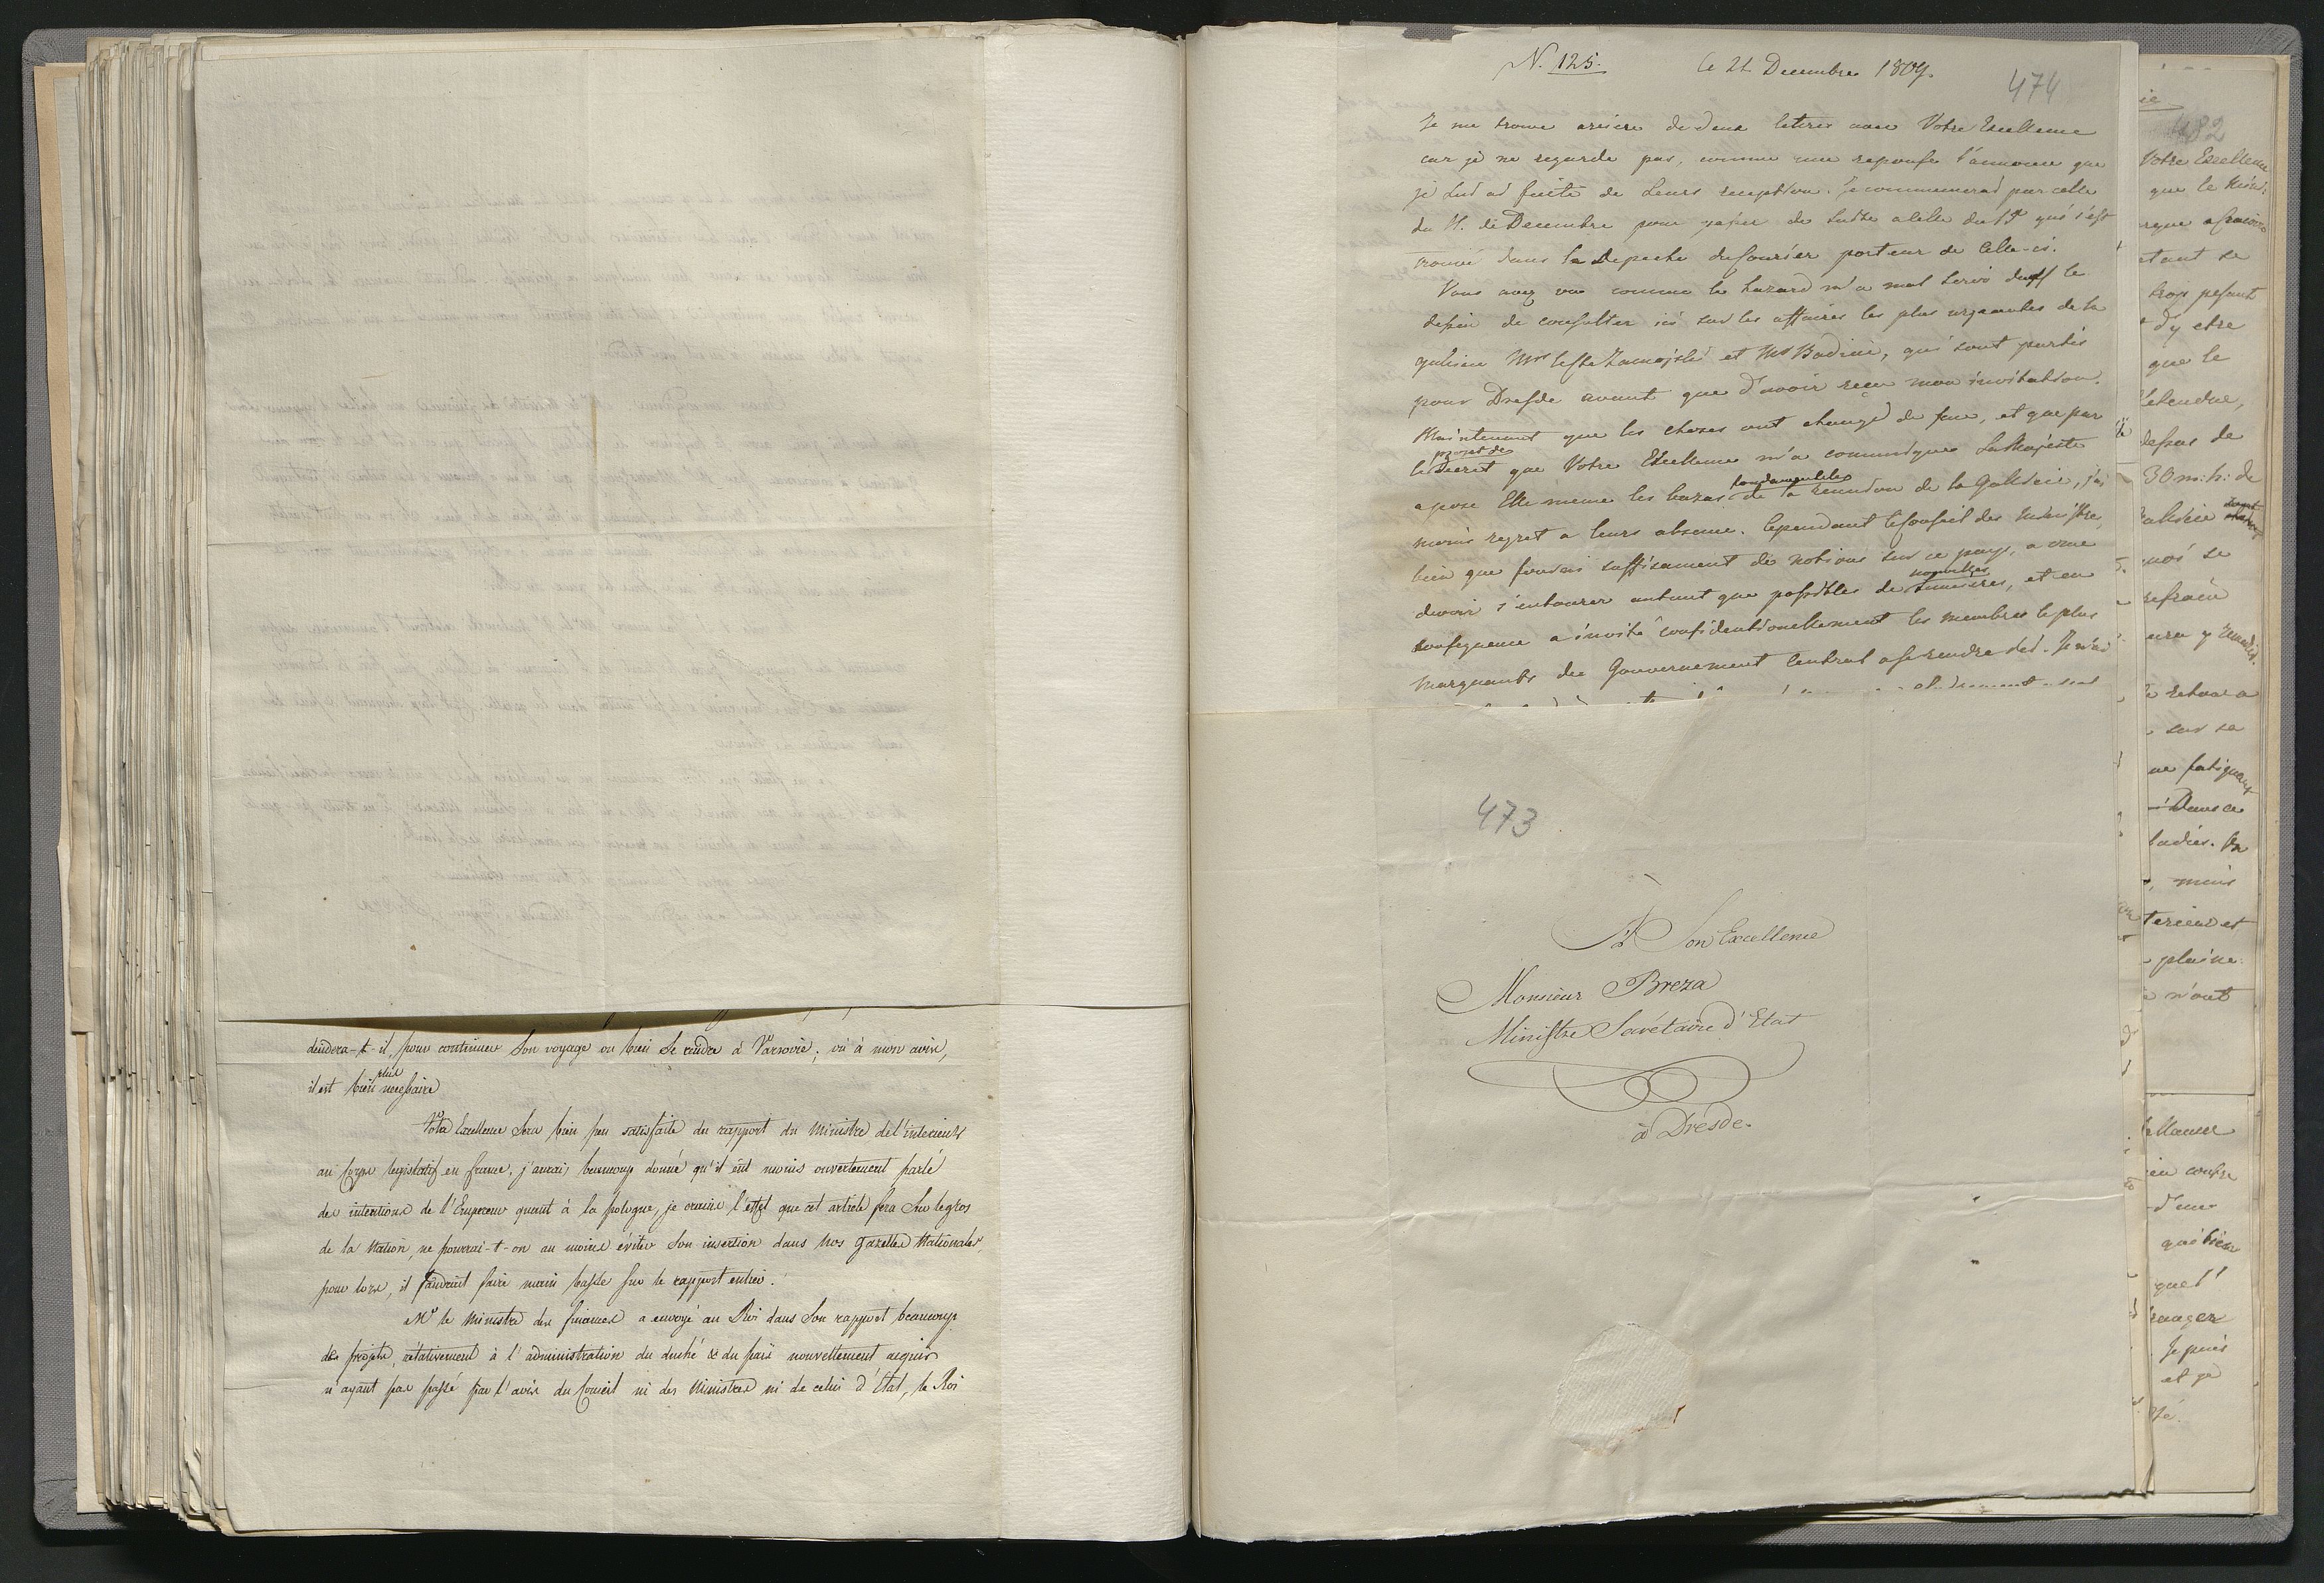 decidera-t-il, pour continuer Son voyage ou bien Se rendre à Varsovie; où à mon avis,
il est bien plus necessaire
Votre Excellence Sera bien peu satisfaite du rapport du Ministre de l'interieur
au Corps legislatif en france, j'aurais beaucoup donné qu'il eût moins ouvertement parlé
des intentions de l'Empereur quant à la pologne, je crains l'effet que cet article fera Sur le gros
de la Nation, ne pourrai-t-on au moins éviter Son insertion dans Nos gazettes Nationales,
pour lors, il faudrait faire main basse sur le rapport entier.
Mr le Ministre des finances a envoyé au Roi dans Son rapport beaucoup
des projets, rélativement à l'administration du duché & du païs nouvellement acquis
n'ayant pas passé par l'avis du Conseil ni des Ministres ni de celui d'Etat, le Roi
N. 125. le 21 Decembre 1809.
474
Je me trouve arriere de deux lettres avec Votre Excellence
car je ne regarde pas, comme une reponse l'annonce que
je lui ai faite de Leurs reception. Je commencerai par celle
du 11. de Decembre pour passer de suite a celle du 15 qui s'est
trouvé dans la Depeche du Courier porteur de Celle-ci.
Vous avez vu comme le hazard m'a mal servi dans le
dessein de consulter ici sur les affaires les plus urgeantes de la
galicie Mrs le Cte Zamojski et Mr Badini, qui sont partis
pour Dresde avant que d'avoir reçu mon invitation.
Maintenant que les choses ont changé de face, et que par
le projet de Decret que Votre Excellence m'a communiqué Sa Majesté
a posé Elle meme les bazes fondamentales de la reunion de la Galicie, j'ai
moins regret a leurs absence. Cependant le Conseil des Ministres,
bien que suffisament de notions sur ce pays, a crue
devoir s'entourer autant que possible de nouvelles lumieres, et en
consequence a invité confidentionellement les membres le plus
marquants du Gouvernement Central a se rendre ici. Je n'ai
473
À Son Excellence
Monsieur Breza
Ministre Secrétaire d'Etat
à Dresde.
482
Votre Excellence
que le
etant se
trop pesant
d'y etre
que le
l'etendue,
30 m: h: de
se
le retour a
sur sa
Dans ce
mais
terieur et
plaine
n'ont
contre
d'une
que l'
Je puis
et je